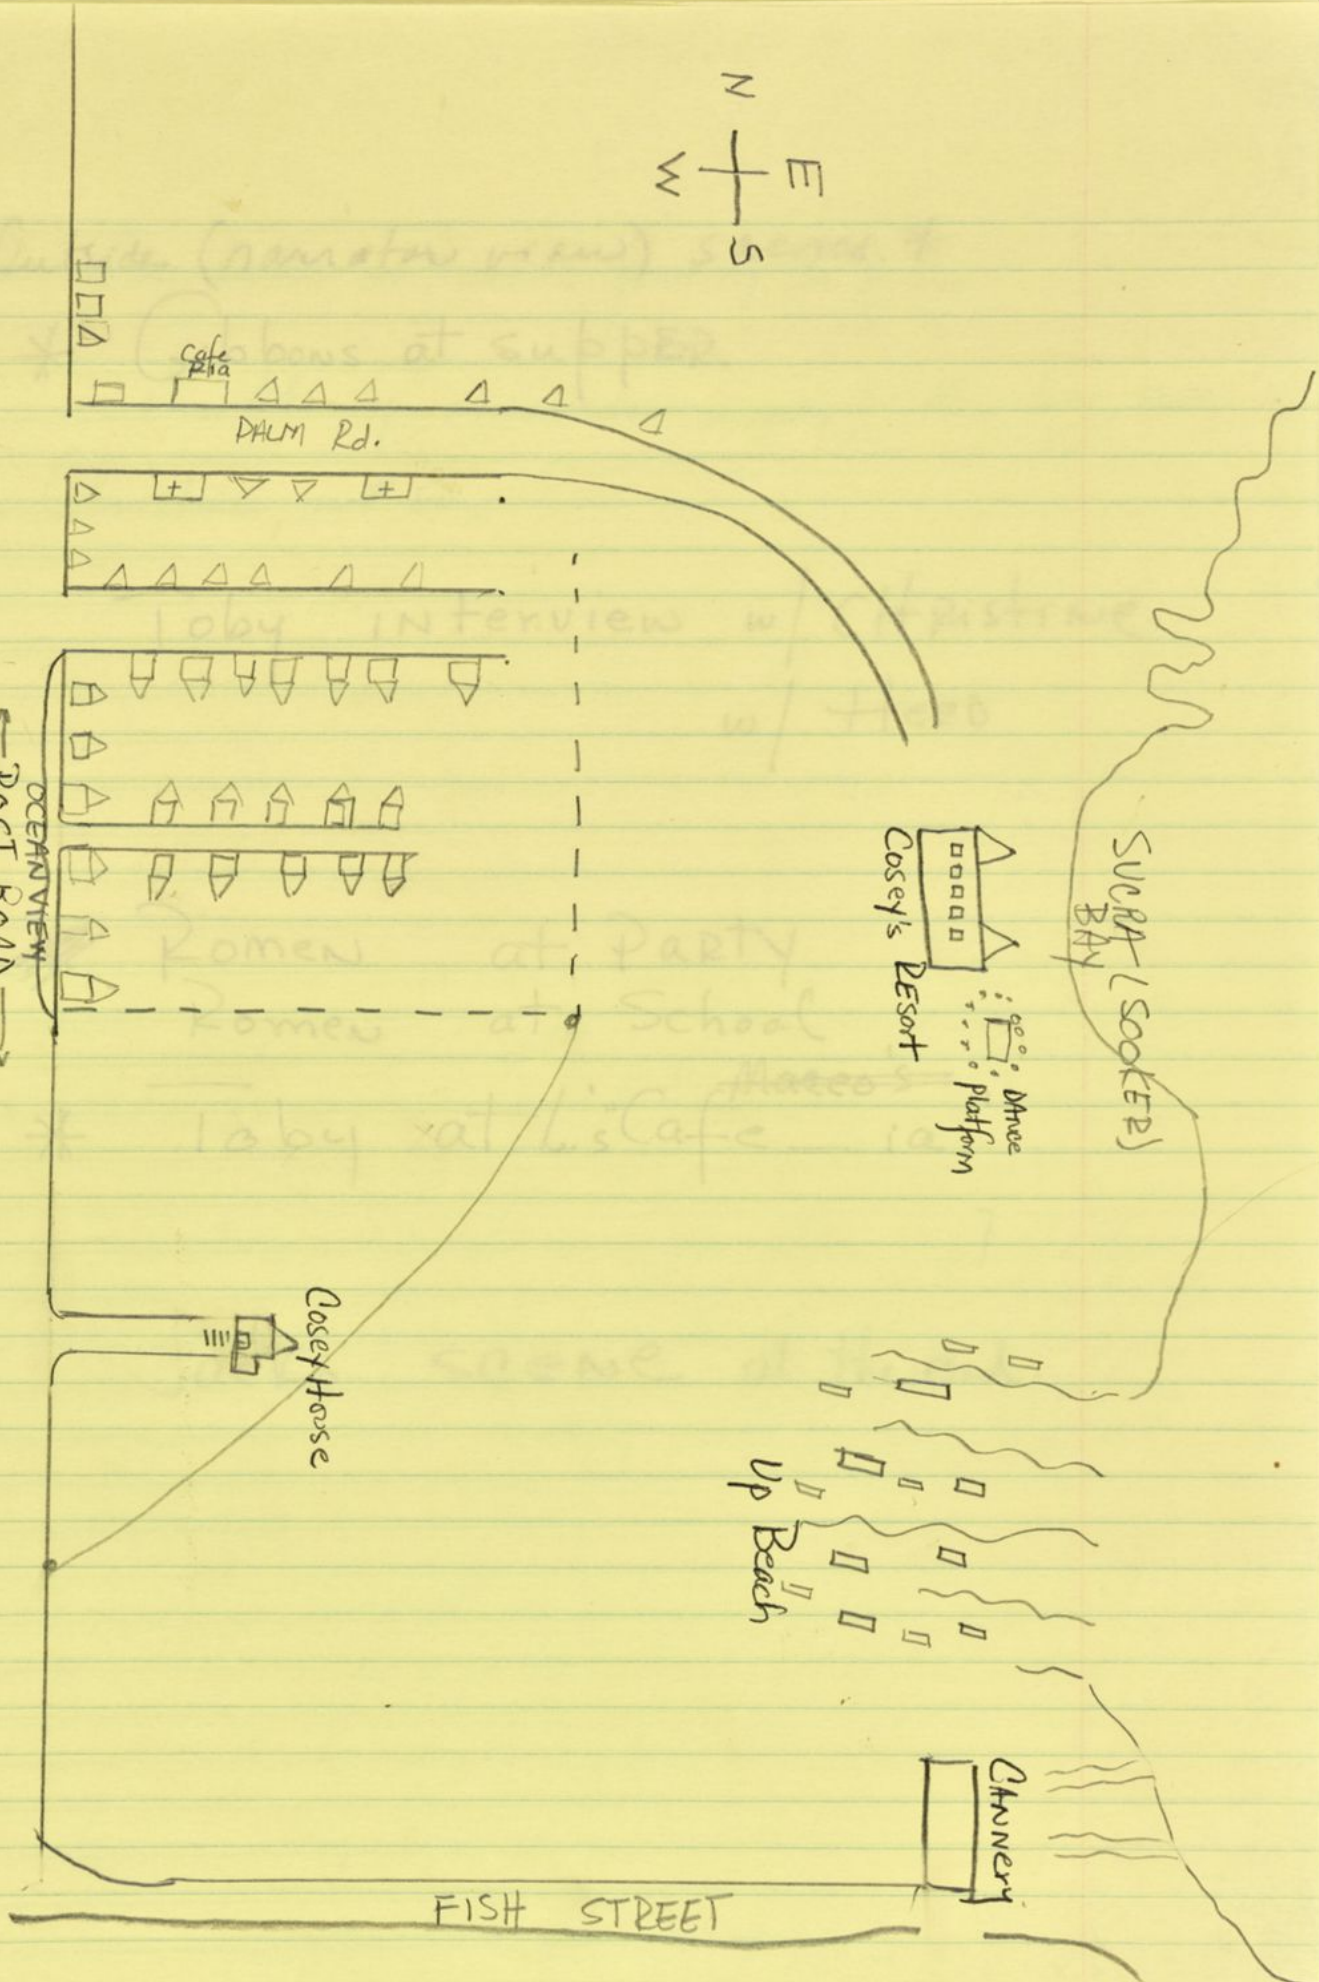 N
E
W
S
Cafe
Ria
PALM Rd.
OCEAN VIEW
POST ROAD
Cosey's Resort
Dance
Platform
SUCRA (SOOKER)
BAY
Cosey House
Up Beach
CANNery
FISH STREET
(narrator view)
at supper
Toby Interview w/ Christine
w/ Heed
Romen at Party
Romen at School
Maceo's
Toby at L's Cafe
scene